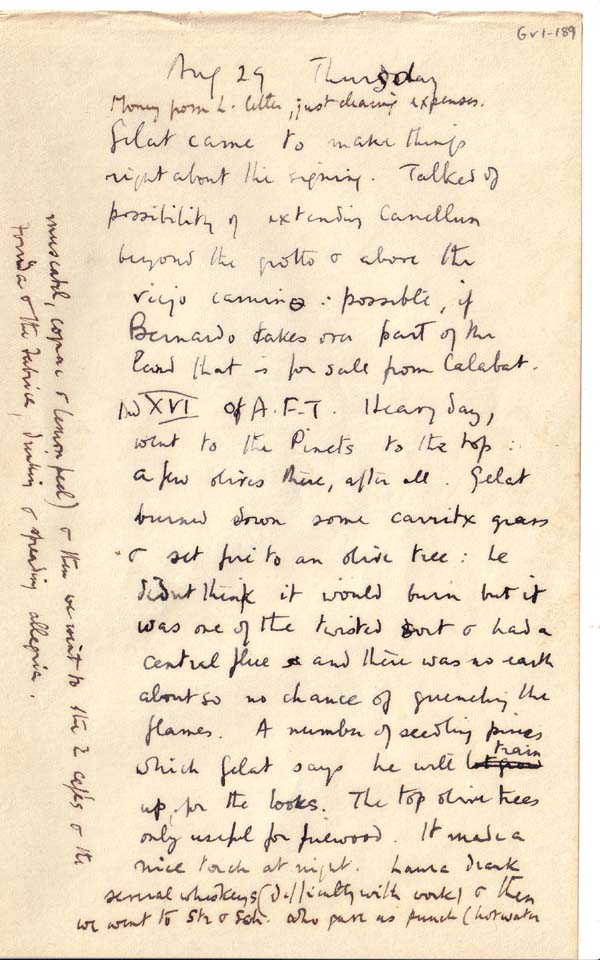 Gv1-189
Aug 29 Thursday
Money from L. letter, just clearing expenses.
Gelat came to make things
right about the signing. Talked of
possibility of extending Canellun
beyond the grotto & above the
viejo camino : possible, if
Bernardo takes over part of the
land that is for sale from Calabat.
XVI of A.F.T. Heavy day,
went to the Pinets to the top :
a few olives there, after all. Gelat
burned down some carritx grass
& set fire to an olive tree : he
didnt think it would burn but it
was one of the twisted sort & had a
central flue and there was no earth
about so no chance of quenching the
flames. A number of seedling pines
which Gelat says he will train
up, for the looks. The top olive trees
only useful for firewood. It made a
nice torch at night. Laura drank
several whiskeys (difficulty with work) & then
we went to Sch. who gave us punch (hot water
muscatel, cognac & lemon peel) & then we went to the 2 cafés & the
Fonda & the Fabrica, drinking & spreading allegria.